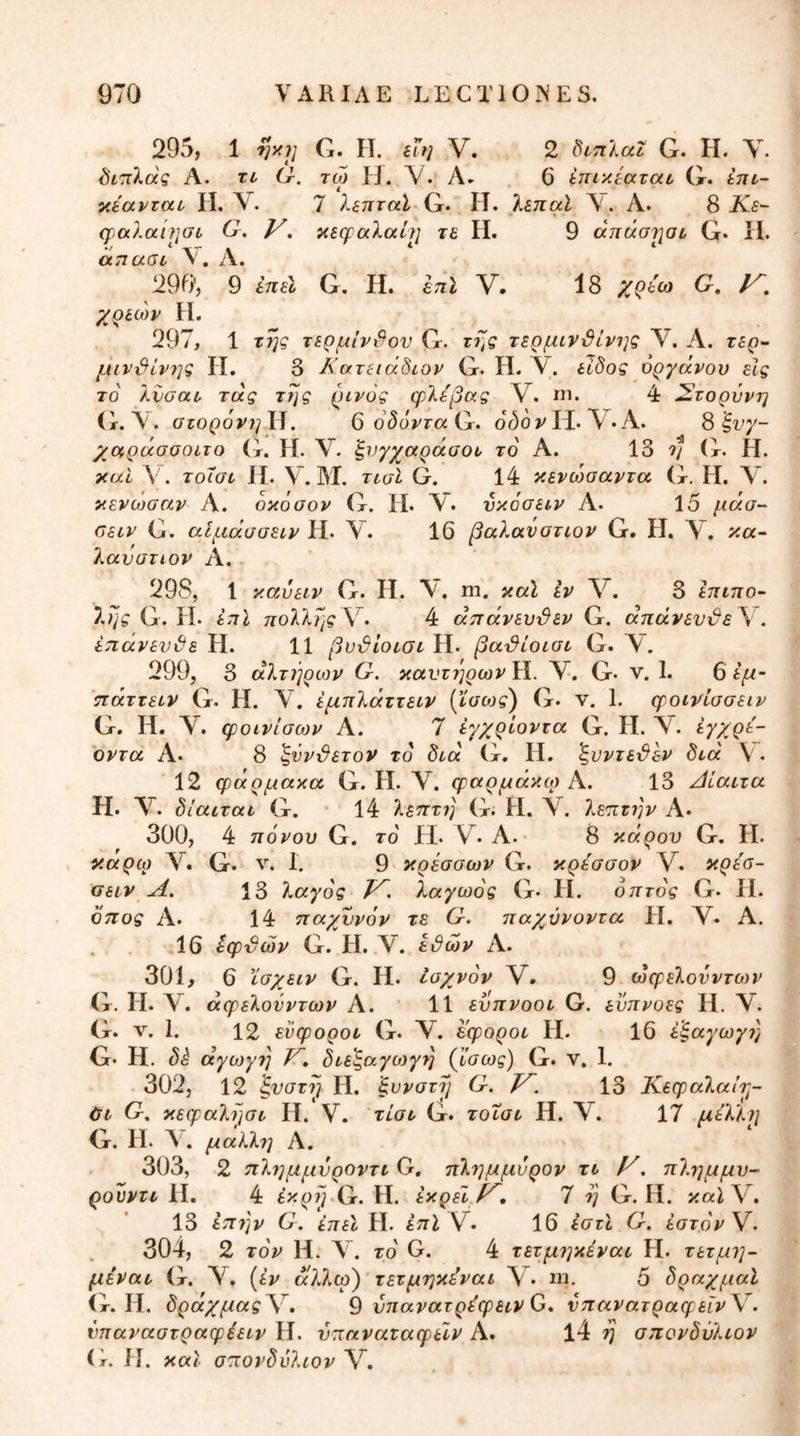 970 VARIAE LECTIONES.
295, 1 ἥκῃ G. H. εἴη V. 2 διπλαῖ G. H. V.
διπλάς A. τι G. τῷ H. V. A. 6 ἐπικέαται G. ἐπι-
κέανται H. V. 7 λεπταὶ G. H. λεπαὶ V. A. 8 Κε-
φαλαίῃσι G. V. κεφαλαίῃ τε H. 9 ἁπάσῃσι G. H.
ἅπασι V. A.
296, 9 ἐπεὶ G. H. ἐπὶ V. 18 χρέω G. V.
χρεὼν H.
297, 1 τῆς τερμίνθου G. τῆς τερμινθίνης V. A. τερ-
μινθίνης H. 3 Κατειάδιον G. H. V. εἶδος ὀργάνου εἰς
τὸ λῦσαι τὰς τῆς ῥινὸς φλέβας V. m. 4 Στορύνη
G. V. στορόνη H. 6 ὀδόντα G. ὁδὸν H. V. A. 8 ξυγ-
χαράσσοιτο G. H. V. ξυγχαράσοι τὸ A. 13 ἢ G. H.
καὶ V. τοῖσι H. V. M. τισὶ G. 14 κενώσαντα G. H. V.
κενώσαν A. ὁκόσον G. H. V. ὑκόσειν A. 15 μάσ-
σειν G. αἱμάσσειν H. V. 16 βαλαύστιον G. H. V. κα-
λαύστιον A.
298, 1 καύειν G. H. V. m. καὶ ἐν V. 3 ἐπιπο-
λῆς G. H. ἐπὶ πολλῆς V. 4 ἀπάνευθεν G. ἀπάνευθε V.
ἐπάνευθε H. 11 βυθίοισι H. βαθίοισι G. V.
299, 3 ἀλτήρων G. καυτήρων H. V. G. v. l. 6 ἐμ-
πάττειν G. H. V. ἐμπλάττειν (ἴσως) G. v. l. φοινίσσειν
G. H. V. φοινίσων A. 7 ἐγχρίοντα G. H. V. ἐγχρέ-
οντα A. 8 ξύνθετον τὸ διὰ G. H. ξυντεθὲν διὰ V.
12 φάρμακα G. H. V. φαρμάκῳ A. 13 Δίαιτα
H. V. δίαιται G. 14 λεπτὴ G. H. V. λεπτὴν A.
300, 4 πόνου G. τὸ H. V. A. 8 κάρου G. H.
κάρῳ V. G. v. l. 9 κρέσσων G. κρέσσον V. κρέσ-
σειν A. 13 λαγὸς V. λαγωὸς G. H. ὀπτὸς G. H.
ὅπος A. 14 παχῦνόν τε G. παχύνοντα H. V. A.
16 ἑφθῶν G. H. V. ἐθῶν A.
301, 6 ἴσχειν G. H. ἰσχνὸν V. 9 ὠφελούντων
G. H. V. ἀφελούντων A. 11 εὔπνοοι G. εὔπνοες H. V.
G. v. l. 12 εὔφοροι G. V. ἔφοροι H. 16 ἐξαγωγὴ
G. H. δὲ ἀγωγὴ V. διεξαγωγὴ (ἴσως) G. v. l.
302, 12 ξυστῇ H. ξυνστῇ G. V. 13 Κεφαλαίῃ-
σι G. κεφαλῇσι H. V. τίσι G. τοῖσι H. V. 17 μέλλῃ
G. H. V. μαλλῃ A.
303, 2 πλημμύροντι G. πλημμύρον τι V. πλημμυ-
ροῦντι H. 4 ἐκρῇ G. H. ἐκρεῖ V. 7 ἢ G. H. καὶ V.
13 ἐπὴν G. ἐπεὶ H. ἐπὶ V. 16 ἐστὶ G. ἐστὸν V.
304, 2 τὸν H. V. τὸ G. 4 τετμηκέναι H. τετμη-
μέναι G. V. (ἐν ἄλλῳ) τετμηκέναι V. m. 5 δραχμαὶ
G. H. δράχμας V. 9 ὑπανατρέφειν G. ὑπανατραφεῖν V.
ὑπαναστραφέειν H. ὑπαναταφεῖν A. 14 ἢ σπονδύλιον
G. H. καὶ σπονδύλιον V.